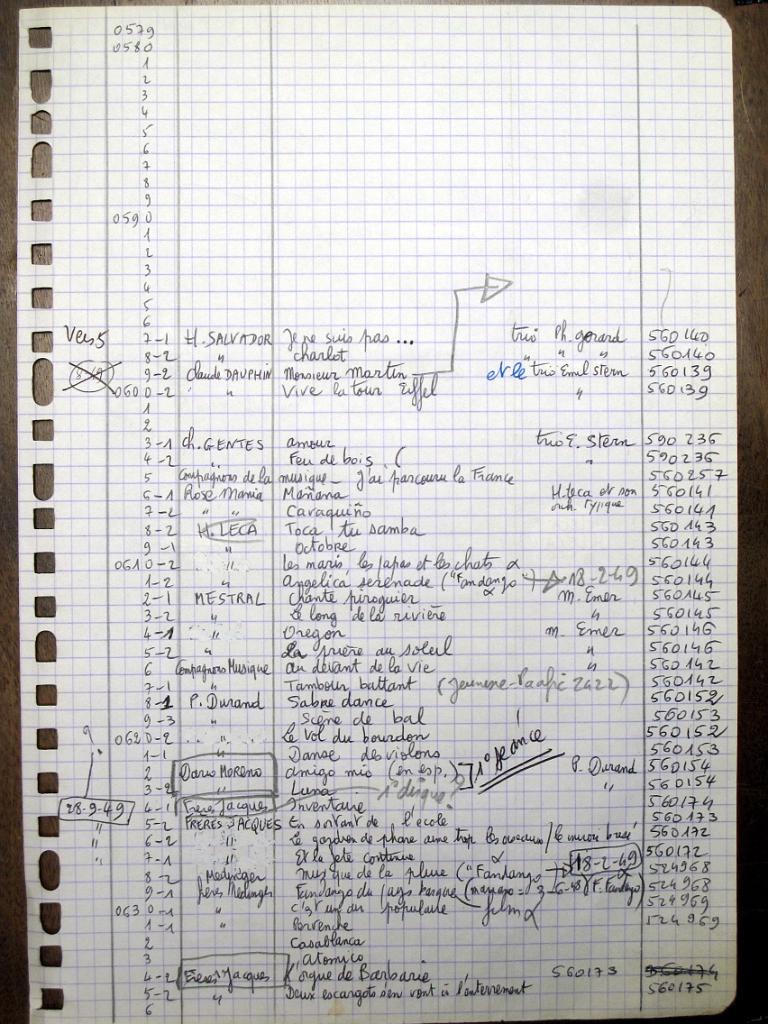 0579
0580
1
2
3
4
5
6
7
8
9
0590
1
2
3
4
5
6
Vers 5 7-1 H. SALVADOR Je ne suis pas ... trio Ph. gerard 560140
8-2 " charlot " " " 560140
9-2 Claude DAUPHIN Monsieur Martin et le trio Emil Stern 560139
0600-2 " " Vive la tour Eiffel " 560139
1
2
3-1 Ch. GENTES amour trio E. Stern 590236
4-2 " Feu de bois ( " 590236
5 Compagnons de la musique - J'ai parcouru la France 560257
6-1 Rose Mania Mañana H. Leca et son 560141
7-2 " " Cavaquiño orch. Typique 560141
8-2 H. LECA Toca tu samba 560143
9-1 " Octobre 560143
0610-2 " les maris, les papas et les chats α 560144
1-2 " Angelica serenade ("Fandango α) 18-2-49 560144
2-1 MESTRAL Chante piroguier M. Emer 560145
3-2 " Le long de la rivière " 560145
4-1 " Oregon M. Emer 560146
5-2 " La prière au soleil " 560146
6 Compagnons Musique au devant de la vie " 560142
7-1 " Tambour battant (Jeunesse- 2422) 560142
8-1 P. Durand Sabre dance 560152
9-3 " Scène de bal 560153
0620-2 " Le Vol du bourdon 560152
1-1 " Danse des violons 560153
2 Dario MORENO Amigo mio (en esp.) 1° séance P. Durand 560154
3-2 " Luna 1° disque ? " 560154
28-9-49 4-1 Frères Jacques Inventaire 560174
" 5-2 FRERES JACQUES En sortant de l'ecole 560173
" 6-2 " Le gardien de phare aime trop les oiseaux / le miroir brisé 560172
" 7-1 " Et la fete continue 560172
8-2 Medinger Musique de la pluie ("Fandango α) 18-2-49 524968
9-1 frères Medinger Fandango du pays basque (mariage = 3-6-48) F. Fandango 524968
0630-1 " c'est un air populaire film α 524969
1-1 " Pervenche 524969
2 Casablanca
3 Atomico
4-2 Freres Jacques L'orgue de Barbarie 560173 560174
5-2 " Deux escargots s'en vont à l'enterrement 560175
6